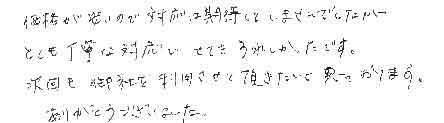 価格が安いので対応は期待していませんでしたが
とても丁寧な対応していてうれしかったです。
次回も御社を利用させて頂きたいと思っております。
ありがとうございました。